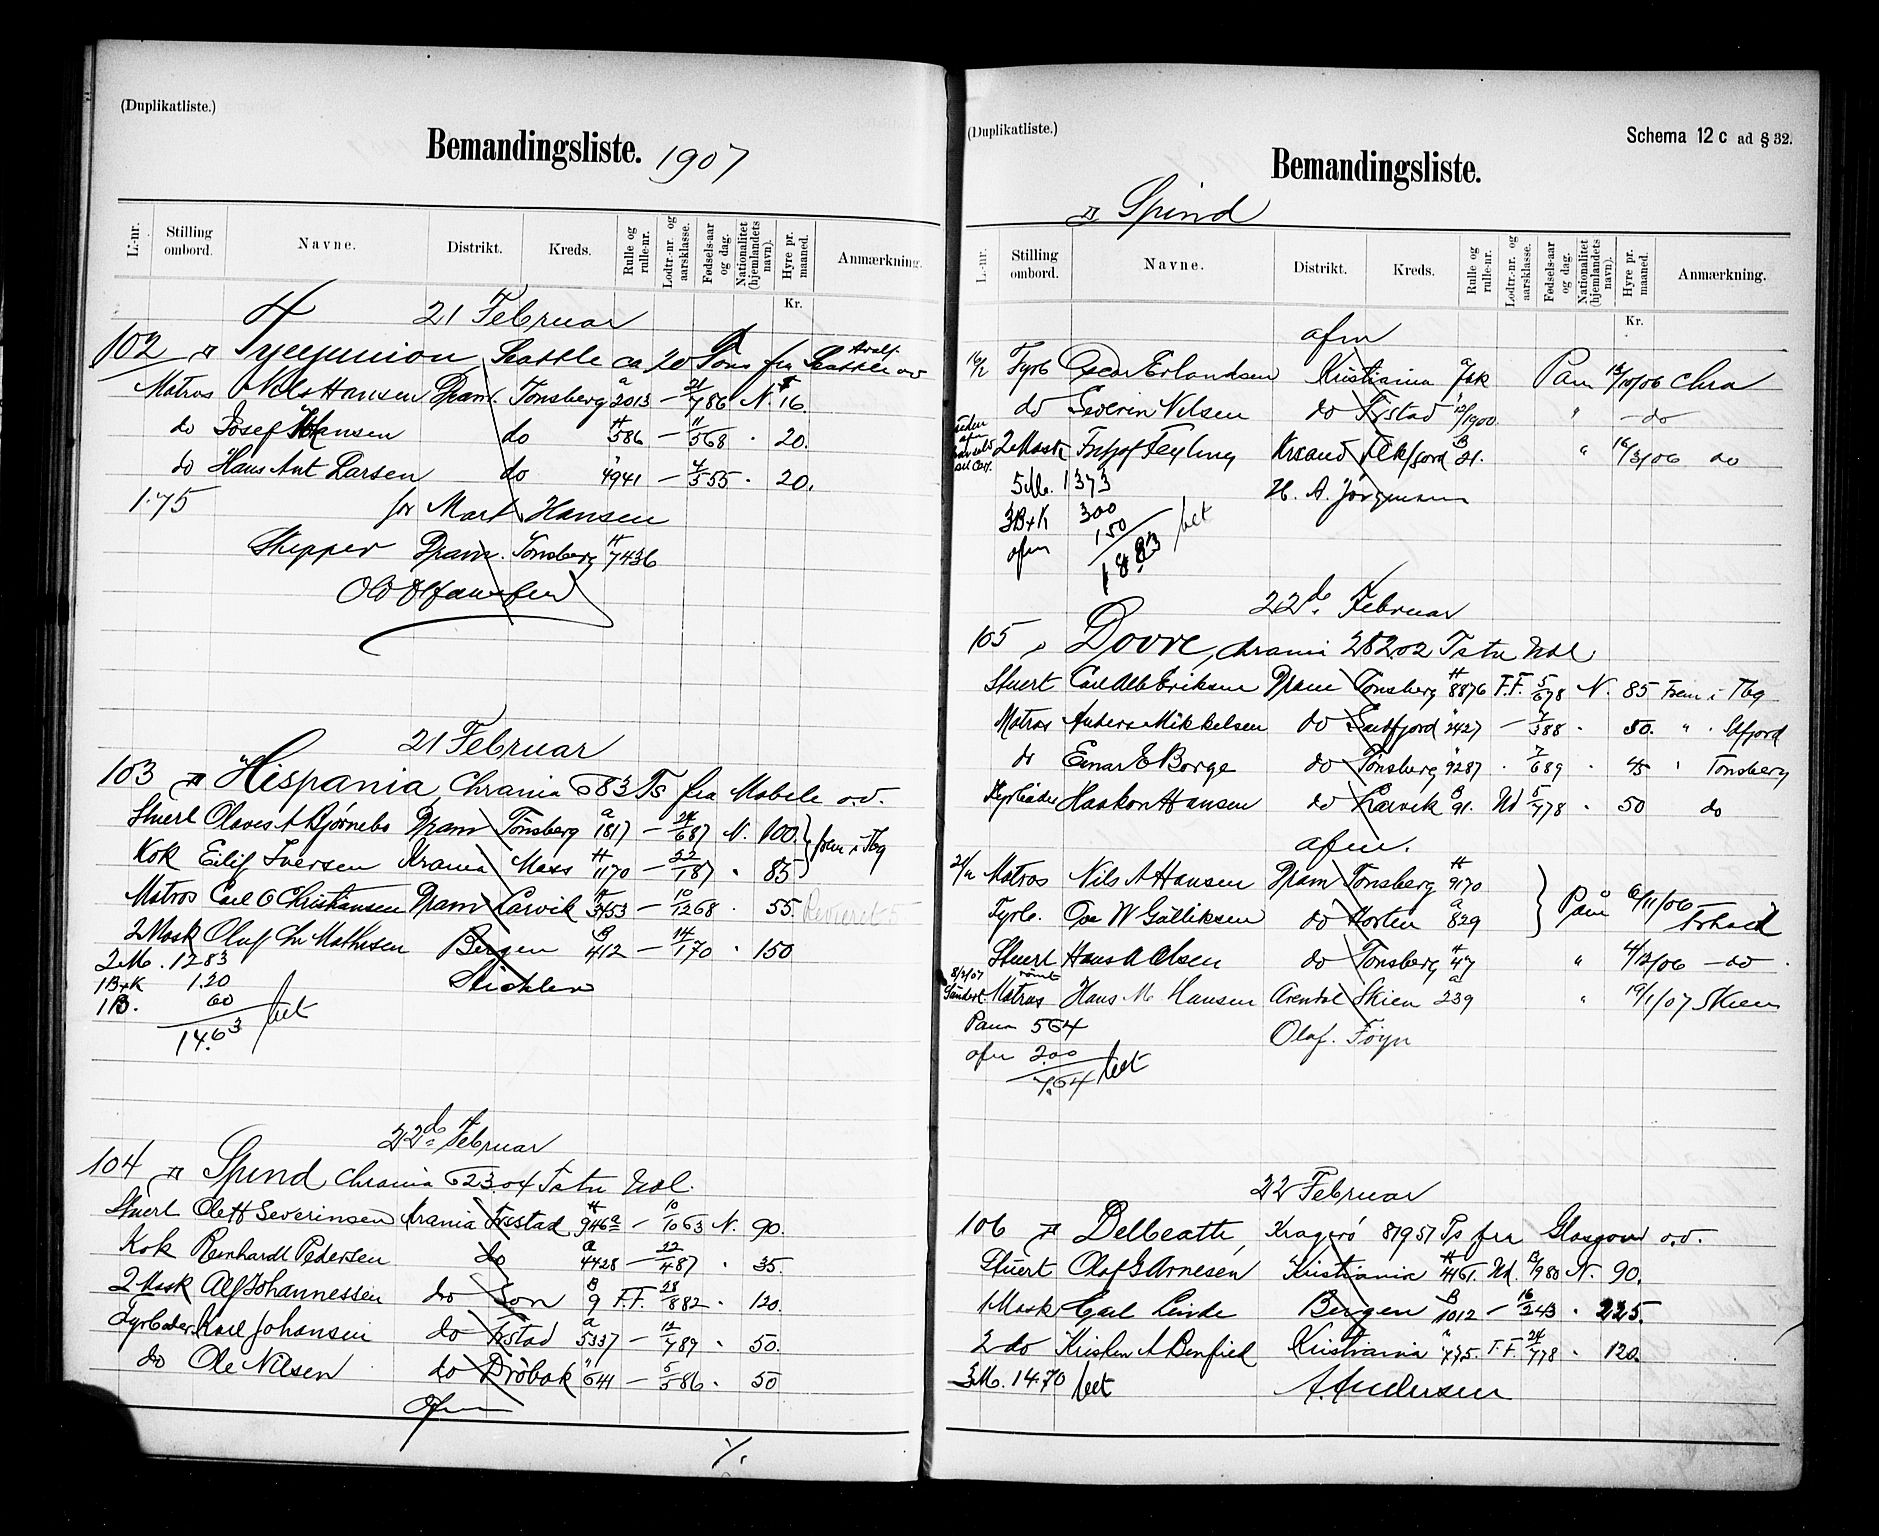 (Duplikatliste.)
Bemandingsliste. 1907
L.-nr. Stilling ombord. Navne. Distrikt. Kreds. Rulle og rulle-nr. Lodtr.-nr. og aarsklasse. Fødsels-aar og dag. Nationalitet (hjemlandets navn). Hyre pr. maaned. Anmærkning.
Kr.
21 Februar
102 Seattle ca 20 Tons fra Seattle av
Matros Nils Hansen Dram. Tønsberg a 2013 — 21/7 86 N. 16.
do Josef Hansen do H 586 — 11/5 68 " 20.
do Hans Ant Larsen do " 4941 — 4/5 55 " 20.
1.75 for Mart. Hansen
Skipper Dram. Tønsberg H 7436
21 Februar
103 Hispania Chrania 683 Ts fra Mobile o.v.
Stuert Olaves A Bjørnebo Dram Tønsberg a 1817 — 24/6 87 N. 100. frem i Tbg
Kok Eilif Iversen Krania Moss H 1170 — 22/1 87 " 85
Matros Carl O Christiansen Dram Larvik H 3453 — 10/12 68 " 55.
2 Mask Oluf Chr Mathisen Bergen B 412 — 14/1 70 " 150
2 M. 1283
1 B+K 1.20
1 B. 60
14.63 bet
22de Februar
104 Spind Chrania 623.04 Ts tr Udl.
Stuert Oleff Severinsen Krania Frstad H 946a — 10/10 63 N. 90.
Kok Reinhardt Pedersen do a 4428 — 22/4 87 " 35.
2 Mask Alf Johannessen do Son B 9 F.F. 28/8 82 " 120.
Fyrbøder Karl Johansen do Frstad a 5337 — 12/7 89 " 50.
do Ole Nilsen do Drøbak " 641 — 5/5 86 " 50
Afm
(Duplikatliste.) Schema 12 c ad § 32.
Bemandingsliste.
Spind
L.-nr. Stilling ombord. Navne. Distrikt. Kreds. Rulle og rulle-nr. Lodtr.-nr. og aarsklasse. Fødsels-aar og dag. Nationalitet (hjemlandets navn). Hyre pr. maaned. Anmærkning.
Kr.
afm
16/2 Fyrb Oscar Erlandsen Kristiania Paam 13/10/06 Chra
do Severin Nilsen do Frstad 12/1900. " — do
2 Mask Fritjof Feyling Krsand Flekfjord B 21. " 16/3/06 do
5 M. 1373 H. A. Jørgensen
3 B+K 300
afm 150
18.23 bet
22de Februar
105 Dovre, Chrania 282.02 Ts tr Udl
Stuert Carl Alb Eriksen Dram Tønsberg H 8876 F.F. 5/6 78 N. 85 Frem i Tbg
Matros Anders Mikkelsen do Sandfjord " 2427 — 7/3 88 " 50. " Sfjord
do Einar E Borge do Tønsberg " 9287 " 7/6 89 " 45 " Tønsberg
Fyrbøder Haakon Hansen do Larvik B 91. Ud 5/7 78 " 50 do
afm.
21/2 Matros Nils A Hansen Dram Tønsberg H 9170 Paam 6/11/06
Fyrb. Ove W Gulliksen do Horten a 829
Stuert Hans A Olsen do Tønsberg H 47 " 4/12/06 — do
8/2/07 rømt Matros Hans M Hansen Arendal Skien a 239 " 19/1/07 Skien
Paam 564 Olaf. Føyn
afm 200
7.64 bet
22 Februar
106 Delbeatti, Kragerø 819.57 Ts fra Glasgow o.v.
Stuert Olaf G Arnesen Kristiania H 4161. Ud. 13/9 80 N. 90.
1 Mask Carl Linde Bergen B 1012 — 16/2 43 " 225.
2 do Kristen A Benfield Kristiania " 775. F.F. 24/7 78 " 120.
3 M. 14.70 bet A. Andersen